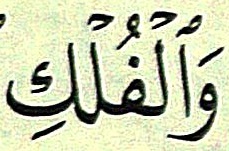 وَٱلْفُلْكِ